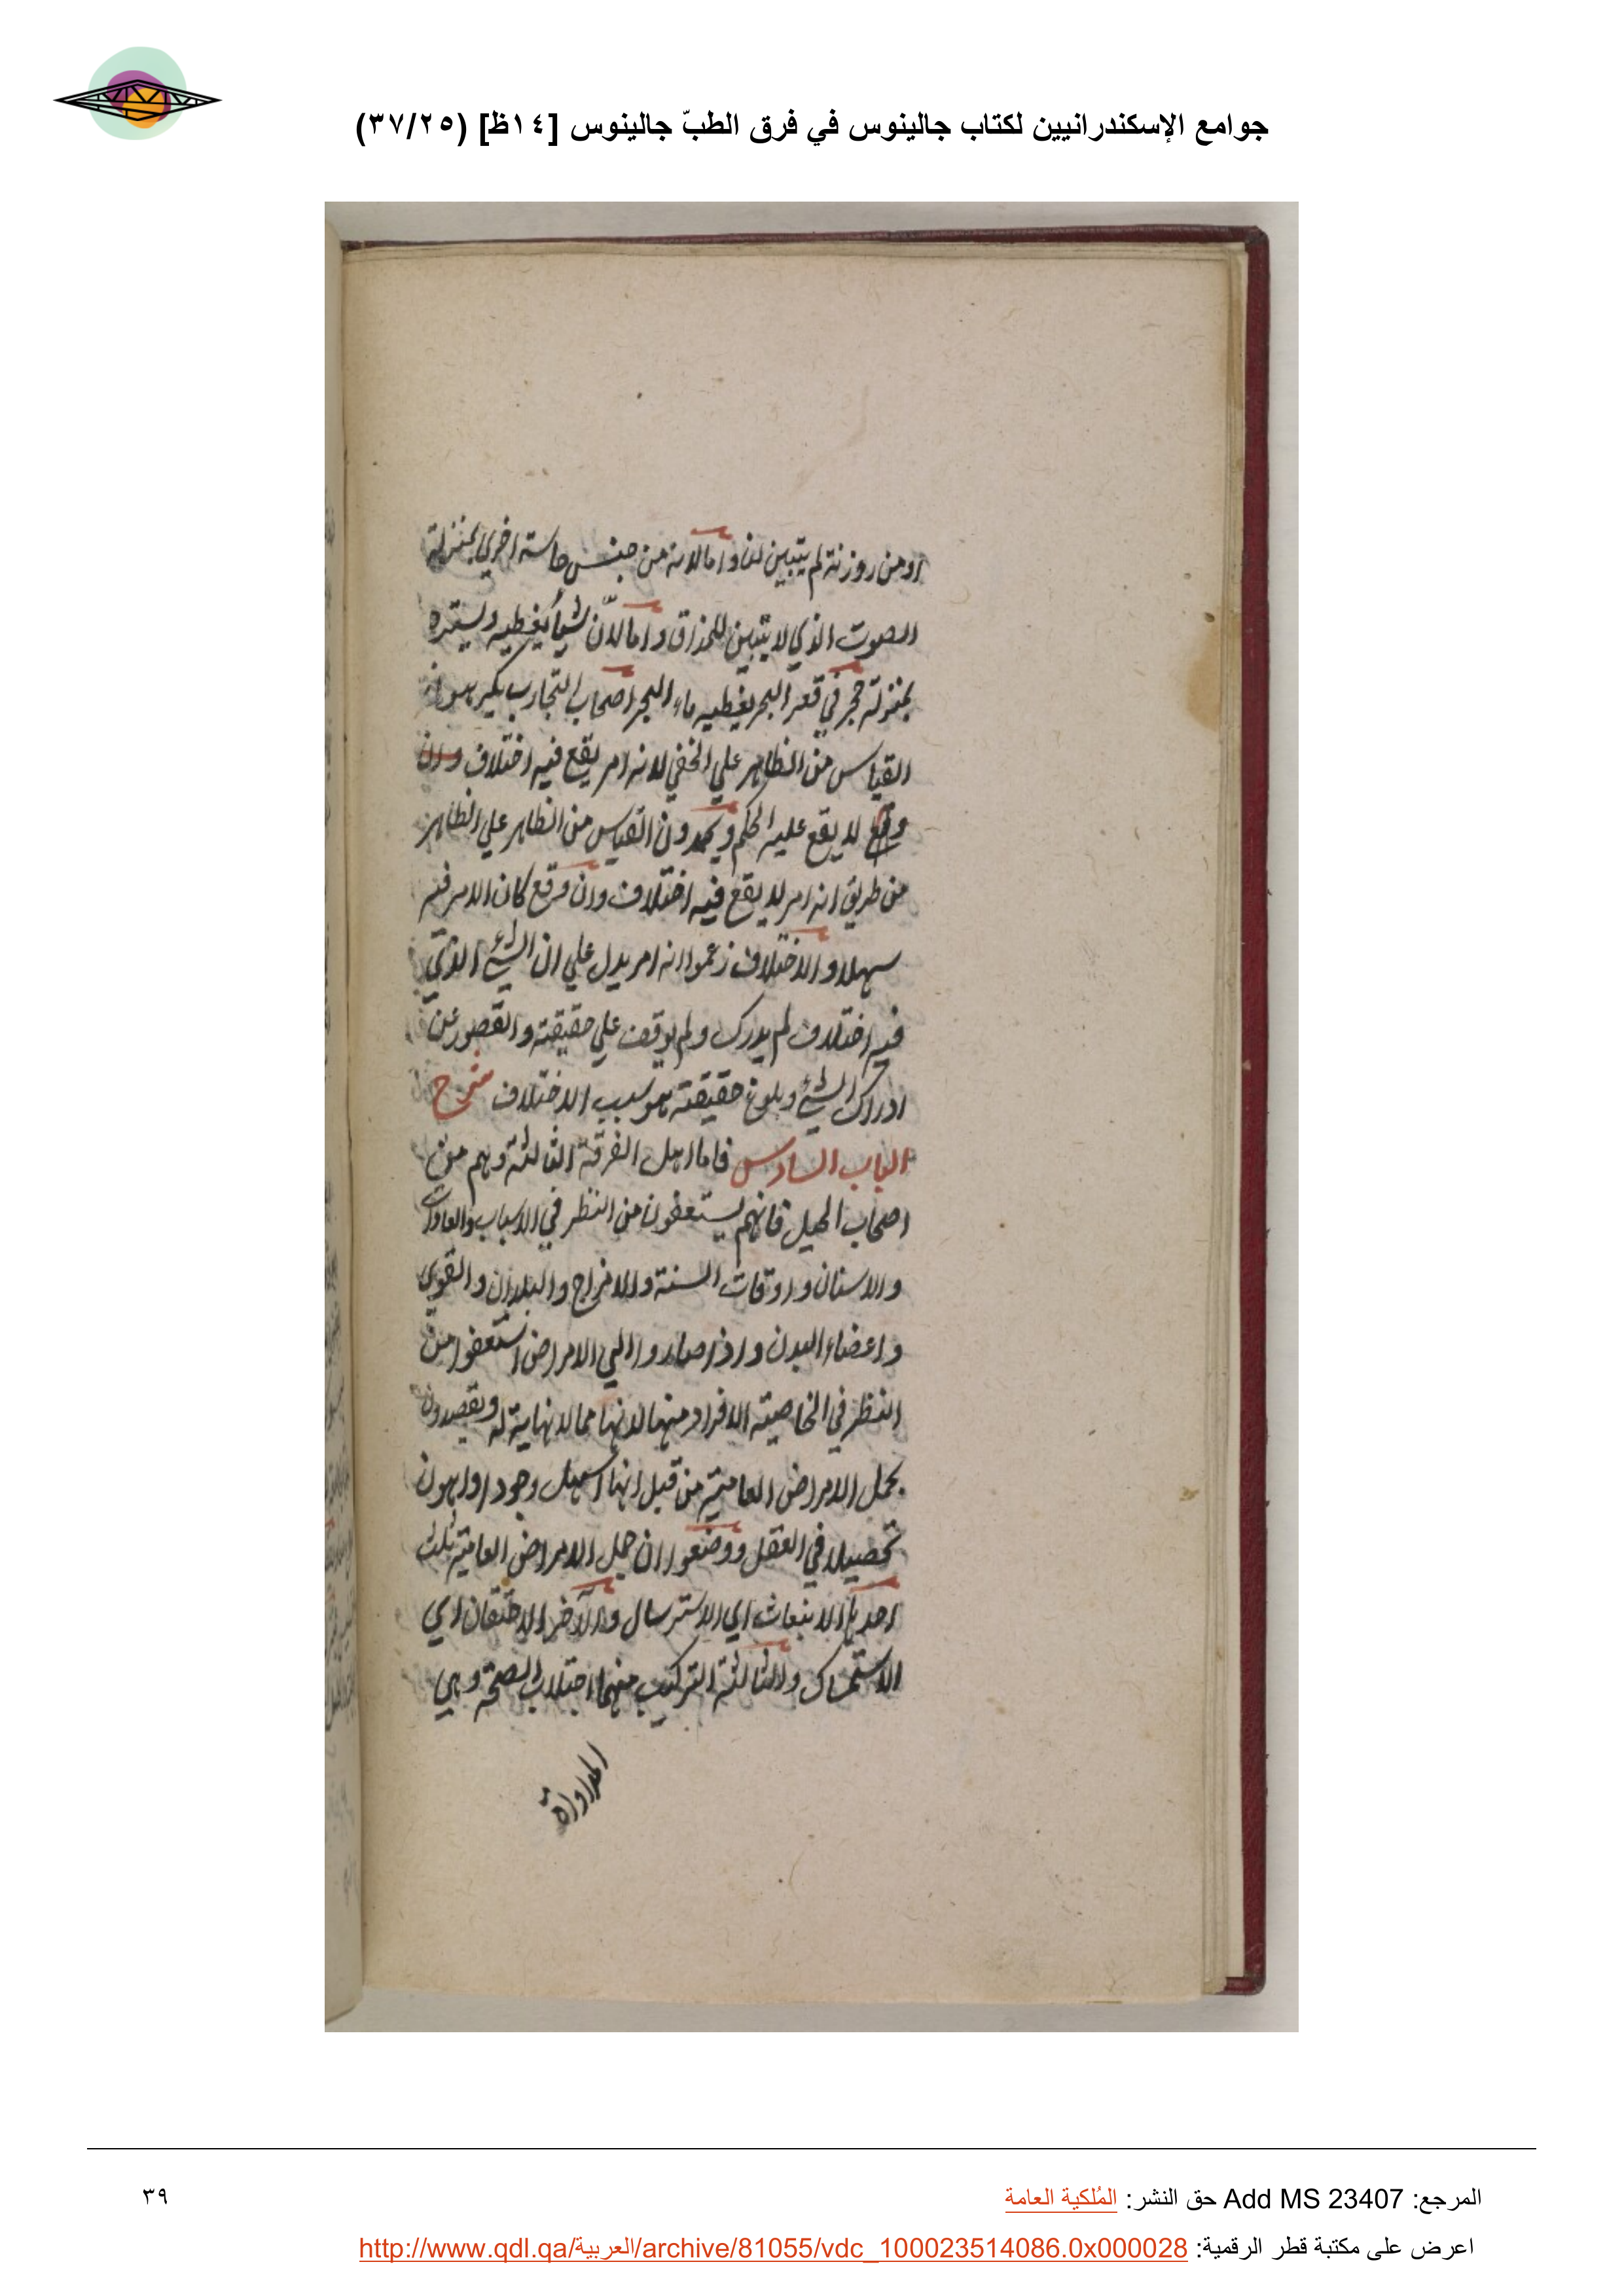 جوامع الإسكندرانيين لكتاب جالينوس في فرق الطبّ جالينوس [١٤ظ] (٣٧/٢٥)
او من روزنة لم يتبين لنا واما لانه من جنس حاسته اخري بمنزلة
الصوت الذي لا يتبين للمذاق واما لانّ شيأ يغطيه ويستره
بمنزلة حجر في قعر البحر يغطيه ماء البحر اصحاب التجارب يكرهون
القياس من الظاهر علي الخفي لانه امر يقع فيه اختلاف وان
وقع لا يقع عليه الحكم ويحمدون القياس من الظاهر علي الظاهر
من طريق انه امر لا يقع فيه اختلاف وان وقع كان الامر فيه
سهلا والاختلاف زعموا انه امر يدل علي ان الشئ الذي
فيه اختلاف لم يدرك ولم يوقف علي حقيقته والقصور عن
ادراك الشئ وبلوغ حقيقته هو سبب الاختلاف شرح
الباب السادس فاما اهل الفرقة الثالثة وهم من
اصحاب الحيل فانهم يستعفون من النظر في الاسباب والعادات
والاسنان واوقات السنة والامزاج والبلدان والقوي
واعضاء البدن واذا صاروا الي الامراض استعفوا من
النظر في الخاصية الافراد منها لانها مما لا نهاية له ويقصدون
بجمل الامراض العامية من قبل انها اسهل وجودا واهون
تحصيلا في العقل ووضعوا ان جمل الامراض العامية ثلث
احديها الانبعاث اي الاسترسال والآخر الاحتقان اي
الاستمساك والثالثة التركيب منهما اجتلاب الصحة وهي
المداواة
المرجع: Add MS 23407 حق النشر: المُلكية العامة
٣٩
اعرض على مكتبة قطر الرقمية: http://www.qdl.qa/العربية/archive/81055/vdc_100023514086.0x000028